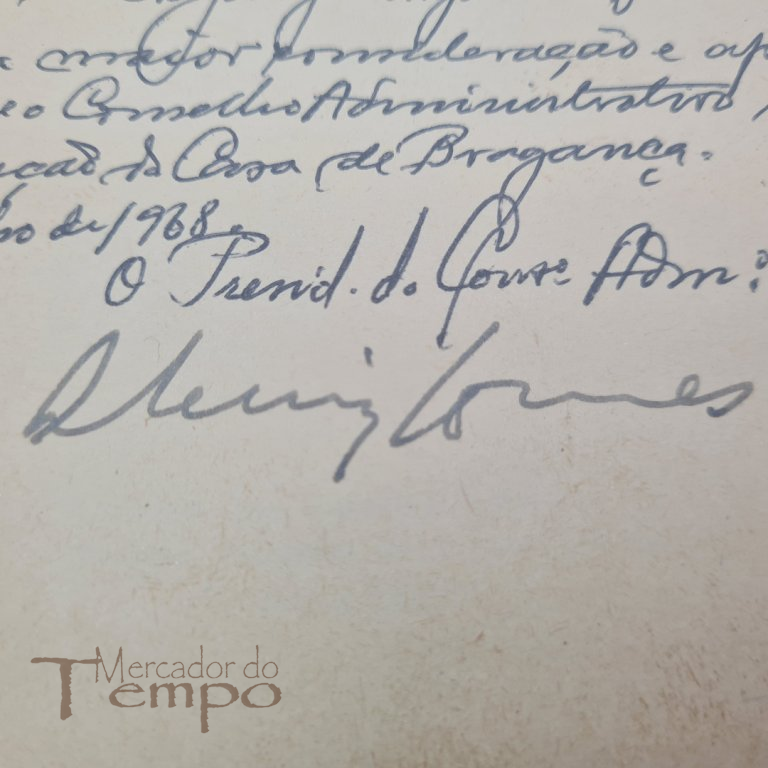 maior consideração e
o Conselho Administrativo
da Casa de Bragança.
de 1968.
O Presid. do Cons.º Adm.º
Gomes
Mercador do
Tempo